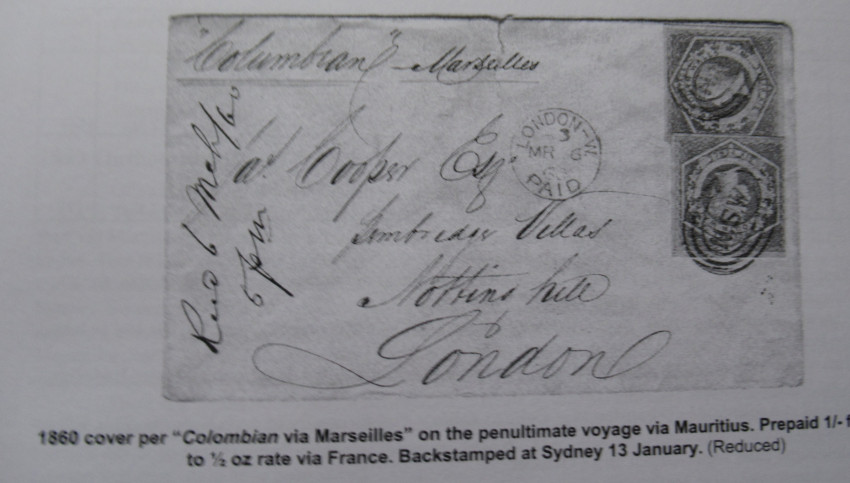 "Columbian" – Marseilles
Recd 6 Mch/60
5 pm
LONDON-W.
3
MR 6
PAID
Cooper Esqr
Pembridge Villas
Notting hill
London
NSW
1860 cover per "Colombian via Marseilles" on the penultimate voyage via Mauritius. Prepaid 1/- f
to ½ oz rate via France. Backstamped at Sydney 13 January. (Reduced)